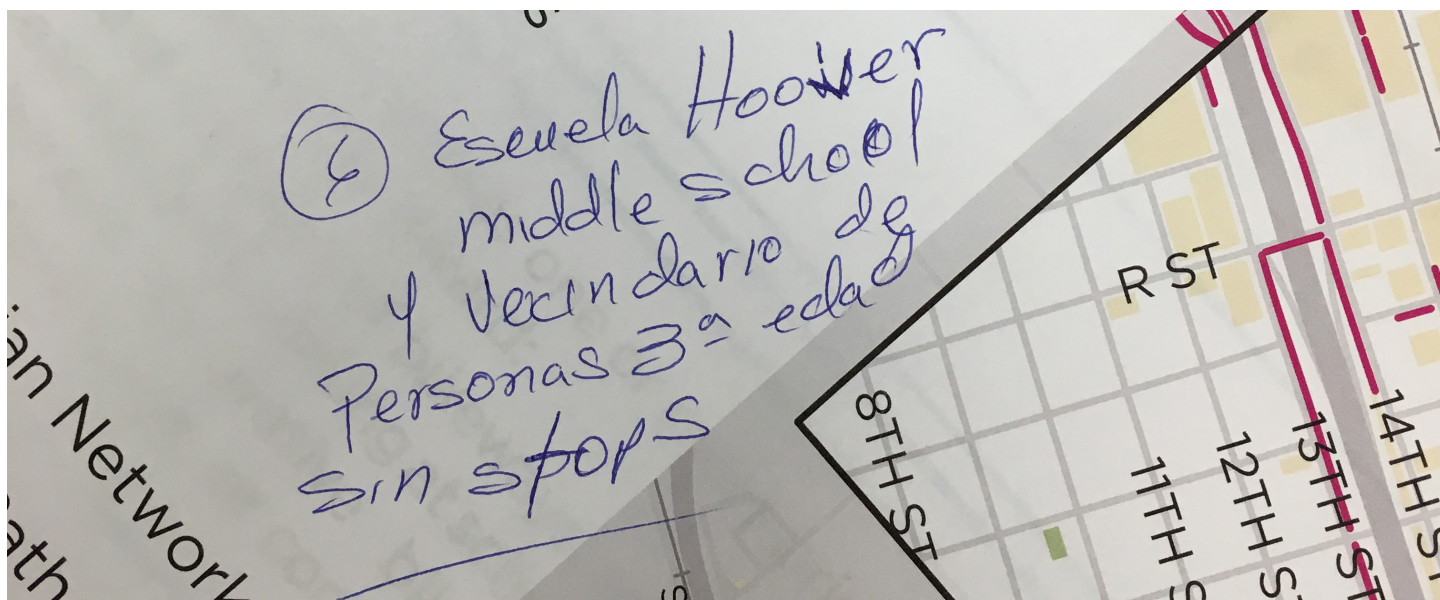 6 Escuela Hoover
middle school
y vecindario de
Personas 3ª edad
sin stops
R ST
8TH ST
11TH S
12TH S
13TH ST
14TH S
an Network
ath